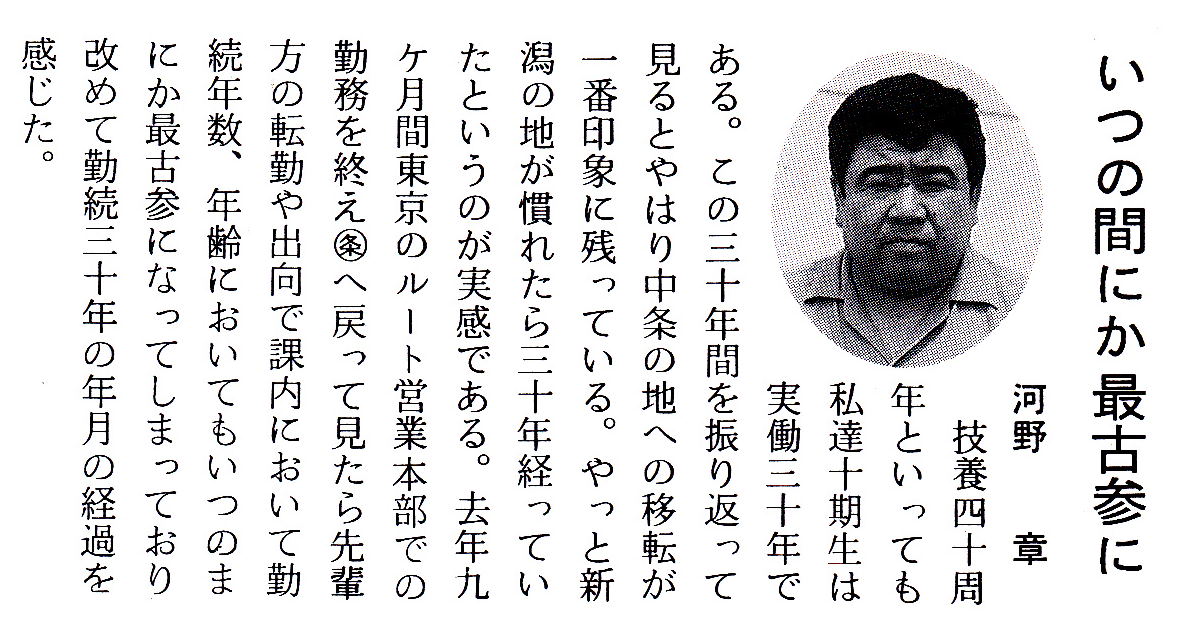 いつの間にか最古参に
河野　章
技養四十周
年といっても
私達十期生は
実働三十年で
ある。この三十年間を振り返って
見るとやはり中条の地への移転が
一番印象に残っている。やっと新
潟の地が慣れたら三十年経ってい
たというのが実感である。去年九
ケ月間東京のルート営業本部での
勤務を終え㊎へ戻って見たら先輩
方の転勤や出向で課内において勤
続年数、年齢においてもいつのま
にか最古参になってしまっており
改めて勤続三十年の年月の経過を
感じた。